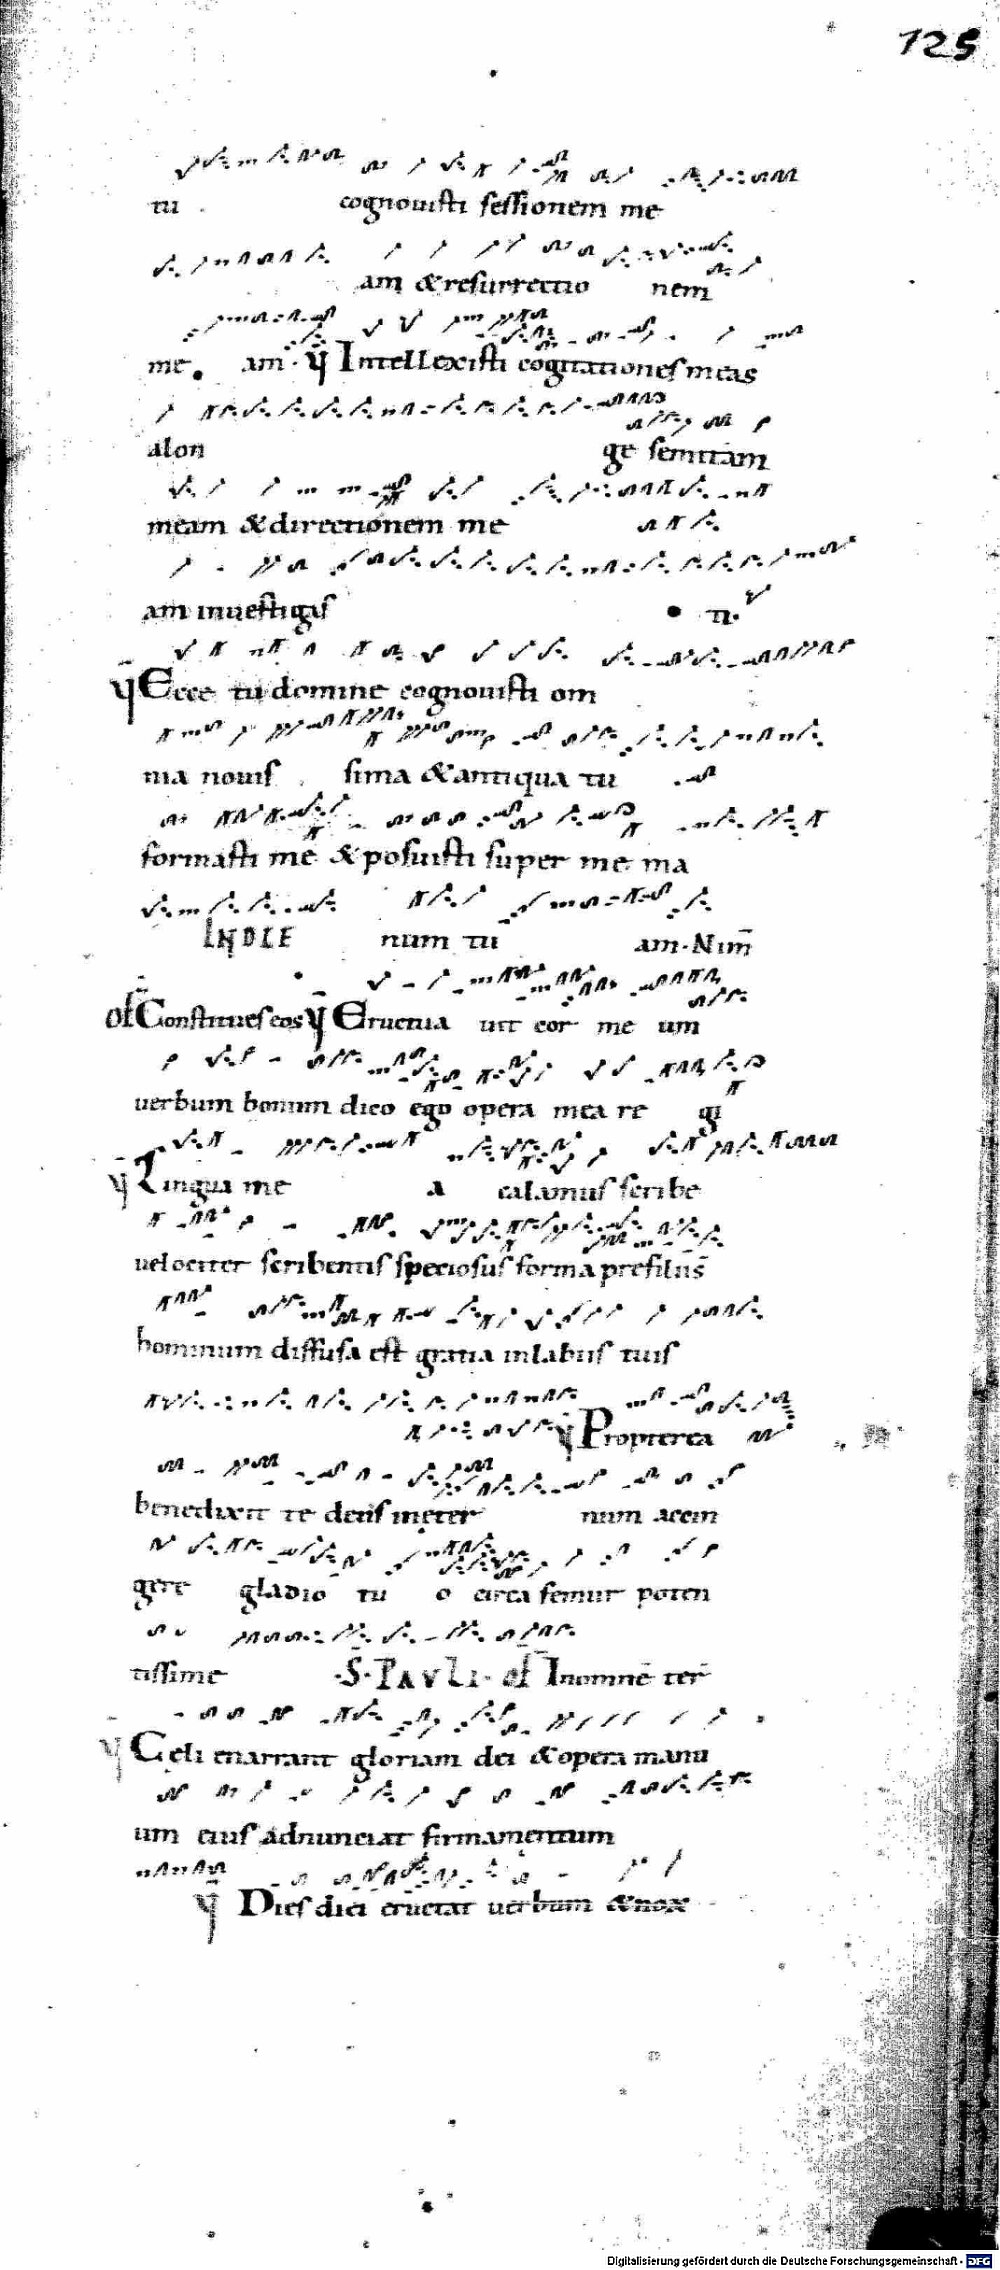 125
tu cognouisti sessionem me
am & resurrectio nem
me am. ℣ Intellexisti cogitationes meas
alon ge semitam
meam & directionem me
am inuestigas ti.
℣ Ecce tu domine cognouisti om
nia nouis sima & antiqua tu
formasti me & posuisti super me ma
INDIE num tu am. Nim̄
OF Constitues eos ℣ Eructua uit cor me um
uerbum bonum dico ego opera mea re gi
℣ Lingua me a calamus scribe
uelociter scribentis speciosus forma prefiliis
hominum diffusa est gratia inlabiis tuis
℣ Propterea
benedixit te deus ineter num accin
gere gladio tu o circa femur poten
tissime ·S· PAVLI· of Inomnē ter̄
℣ Celi enarrant gloriam dei & opera manu
um eius adnunciat firmamentum
℣ Dies diei eructat uerbum & nox
Digitalisierung gefördert durch die Deutsche Forschungsgemeinschaft - DFG